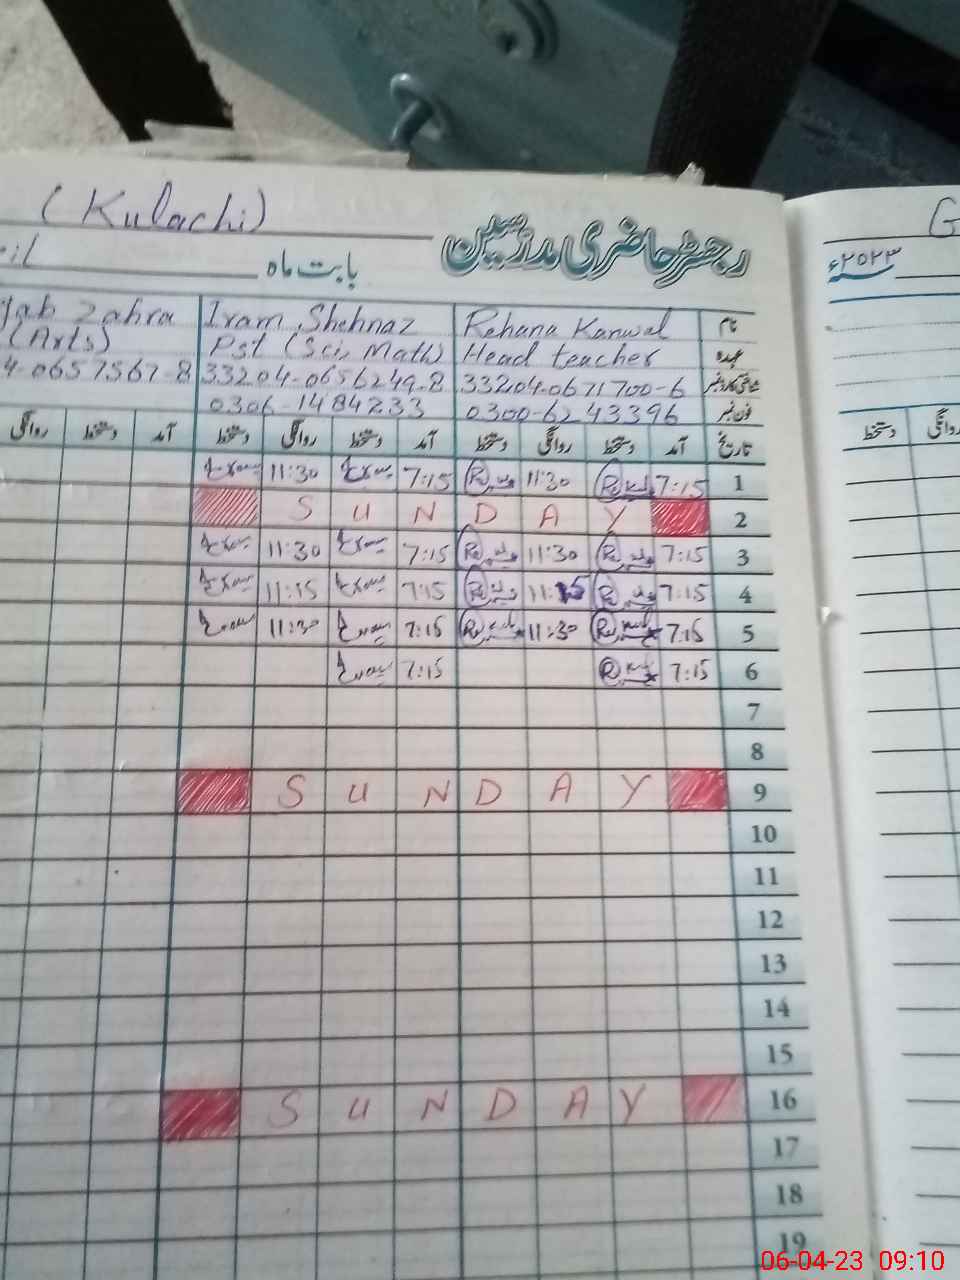 (Kulachi)
رجسٹر حاضری مدرسین
بابت ماہ
۲۰۲۳ء
G
نام Rehana Kanwal Iram Shehnaz jab Zahra
عہدہ Head teacher Pst (Sci, Math) (Arts)
شناختی کارڈ نمبر 33204-0671700-6 33204-0656249-8 4-0657567-8
فون نمبر 0300-6243396 0306-1484233
تاریخ آمد دستخط روانگی دستخط آمد دستخط روانگی دستخط آمد دستخط روانگی
دستخط روانگی
1 7:15 11:30 7:15 11:30
2 S U N D A Y
3 7:15 11:30 7:15 11:30
4 7:15 11:15 7:15 11:15
5 7:15 11:30 7:15 11:30
6 7:15 7:15
7
8
9 S U N D A Y
10
11
12
13
14
15
16 S U N D A Y
17
18
19
06-04-23 09:10